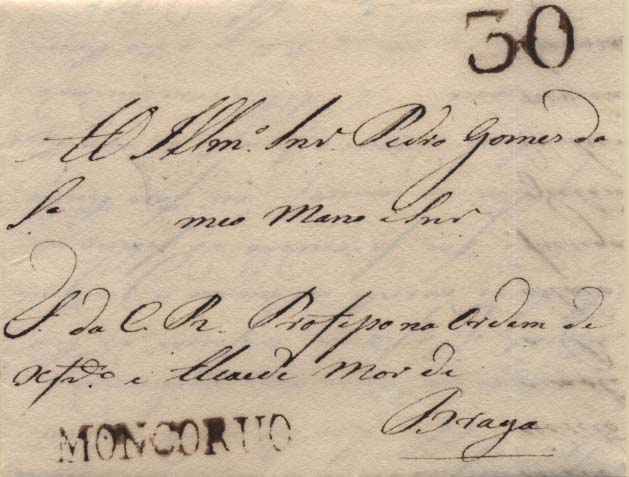 30
Ao Illmo. Snr. Pedro Gomes da
Sa. meo Mano e Snr.
F. da C. R. Professo na Ordem de
Xpto. e Alcaide Mor de
Braga
MONCORUO